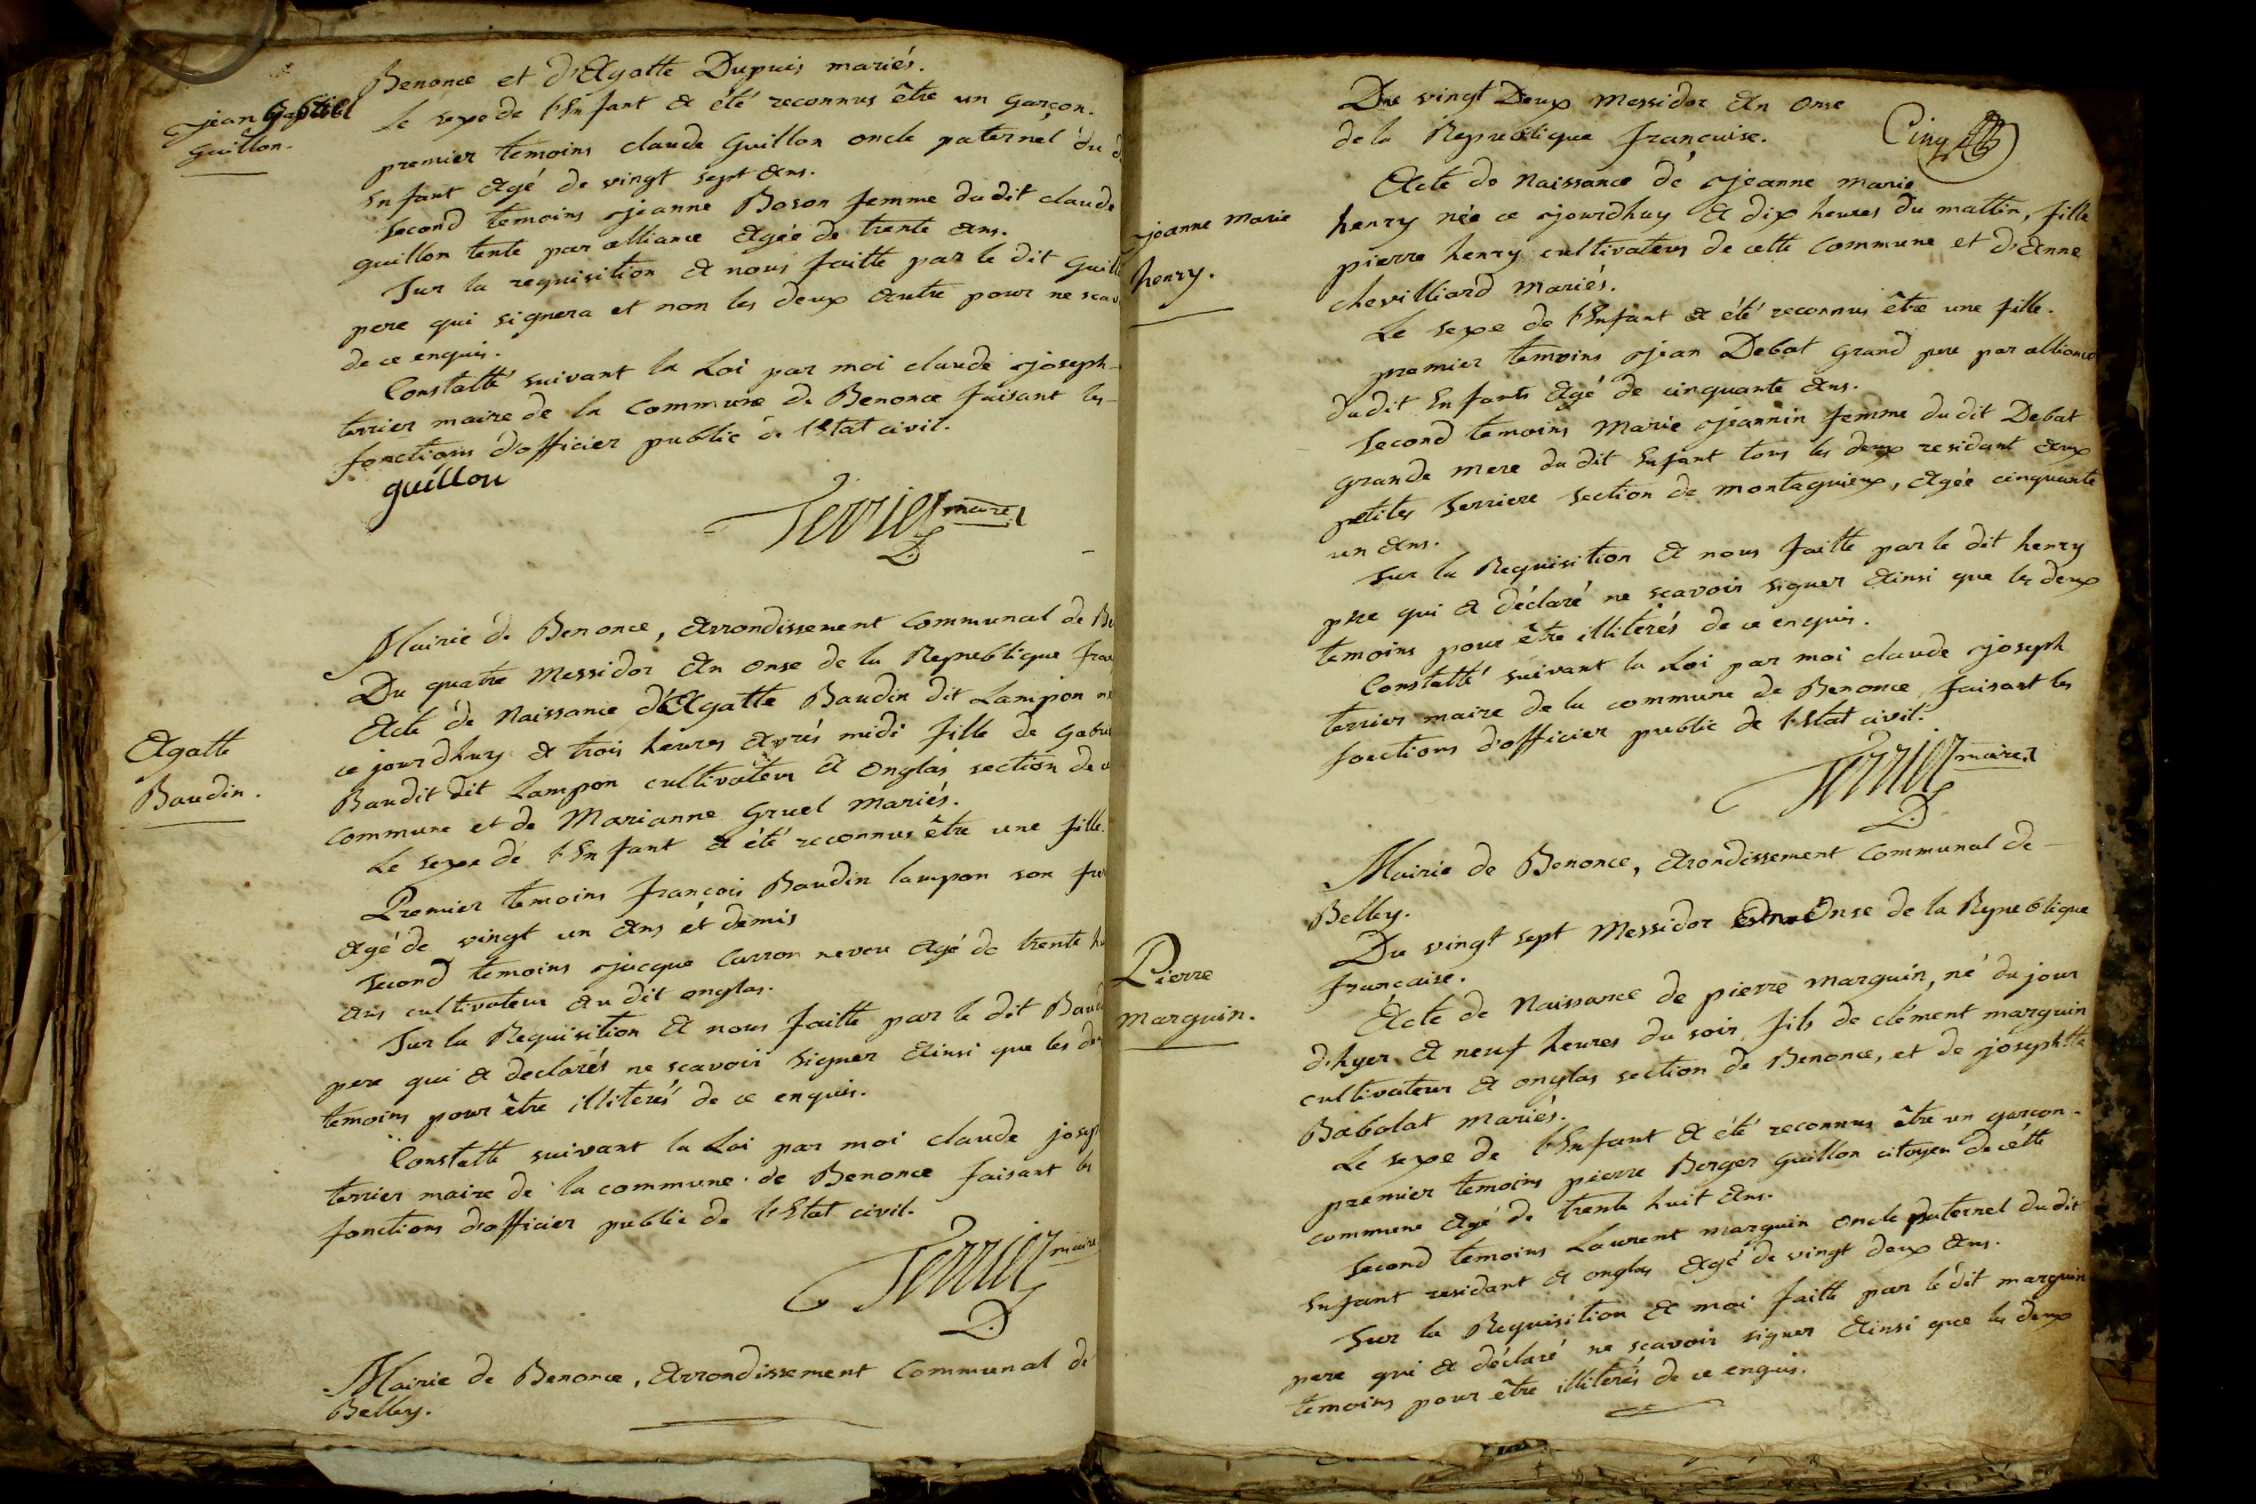 Benonce et d'Agatte Dupuis mariés.
jean
guillon.
Le sexe de l'Enfant a été reconnus être un garçon.
premier temoins claude Guillon oncle paternel du
Enfant agé de vingt sept ans.
second temoins jeanne Boson femme du dit claude
guillon tente par alliance agée de trente ans.
Sur la requisition a nous faitte par le dit
pere qui signera et non les deux autre pour ne
de ce enquis.
Constatté suivant la Loi par moi claude joseph
terrier maire de la commune de Benonce faisant les
fonctions d'officier public de l'Etat civil.
guillon
Terrier maire
Mairie de Benonce, arrondissement communal de
Du quatre Messidor an onse de la Republique
Acte de Naissance d'Agatte Baudin dit Lampon
ce jourdhuy a trois heures après midi fille de
Agatte
Baudin.
Baudit dit Lampon cultivateur a onglas section de
commune et de Marianne Gruel mariés.
Le sexe de l'Enfant a été reconnus être une fille.
Premier temoins françois Baudin lampon son
agé de vingt un ans et demis
second temoins jacque Carron neveu agé de trente
ans cultivateur au dit onglas.
Sur la Requisition a nous faitte par le dit
pere qui a declarés ne scavoir signer ainsi que les
temoins pour être illiterés de ce enquis.
Constatté suivant la Loi par moi claude
terrier maire de la commune de Benonce faisant les
fonctions d'officier public de l'Etat civil.
Terrier maire
Mairie de Benonce, arrondissement communal de
Belley.
Due vingt Deux Messidor an onse
de la Republique françuise.
Cinq
Acte de Naissance de jeanne marie
jeanne marie
henry.
henry née ce jourdhuy a dix heures du mattin, fille
pierre henry cultivateur de cette commune et d'anne
chevilliard mariés.
Le sexe de l'Enfant a été reconnus être une fille.
premier temoins jean Debat grand pere par alliance
du dit Enfants agé de cinquante ans.
Second temoins Marie jeannin femme du dit Debat
grande mere du dit Enfant tous les deux residant aux
petites Serriere section de montagnieux, agée cinquante
un ans.
Sur la Requisition a nous faitte par le dit henry
pere qui a déclaré ne scavoir signer ainsi que les deux
temoins pour être illiterés de ce enquis.
Constatté suivant la Loi par moi claude joseph
terrier maire de la commune de Benonce faisant les
fonctions d'officier public de l'Etat civil.
Terrier maire
Mairie de Benonce, arondissement communal de
Belley.
Du vingt sept Messidor onse de la Republique
française.
Pierre
marguin.
Acte de Naissance de pierre marguin, né du jour
d'hyer a neuf heures du soir, fils de clément marguin
cultivateur a onglas section de Benonce, et de joseph.tte
Babolat mariés.
Le sexe de l'Enfant a été reconnus être un garçon.
premier temoins pierre Berger guillon citoyen de cette
commune agé de trente huit ans.
Second temoins Laurent marguin oncle paternel du dit
Enfant residant a onglas agé de vingt deux ans.
Sur la Requisition a moi faitte par le dit marguin
pere qui a déclaré ne scavoir signer ainsi que les deux
temoins pour être illiterés de ce enquis.